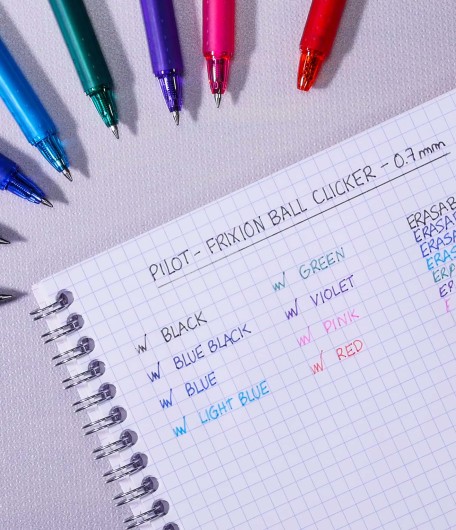 PILOT - FRIXION BALL CLICKER - 0.7mm
BLACK
BLUE BLACK
BLUE
LIGHT BLUE
GREEN
VIOLET
PINK
RED
ERASAB
ERASA
ERASA
ERAS